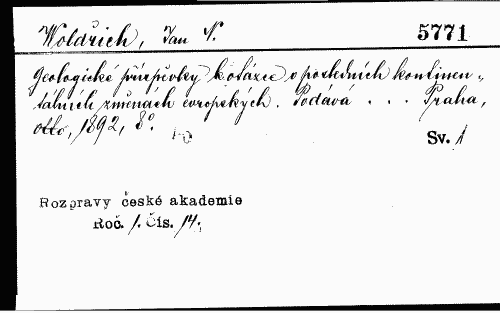 Woldřich, Jan N. 5771
Geologické příspěvky k otázce o posledních kontinen-
tálních změnách evropských. Podává . . . Praha,
Otto, 1892, 8°.
Sv. 1
Rozpravy české akademie
Roč. 1. Čís. 14.